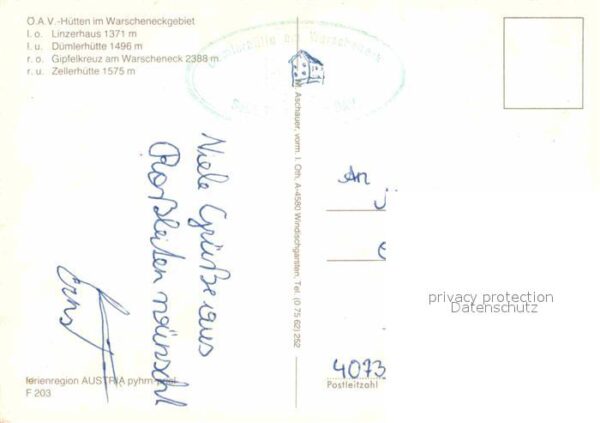 Ö.A.V.-Hütten im Warscheneckgebiet
l. o. Linzerhaus 1371 m
l. u. Dümlerhütte 1496 m
r. o. Gipfelkreuz am Warscheneck 2388 m
r. u. Zellerhütte 1575 m
Dümlerhütte am Warscheneck
M. Aschauer, vorm. I. Oth, A-4580 Windischgarsten, Tel. (0 75 62) 252
Viele Grüße aus
Roßleiten wünscht
Ernst
An
privacy protection
Datenschutz
4073
Postleitzahl
ferienregion AUSTRIA pyhrn-priel
F 203